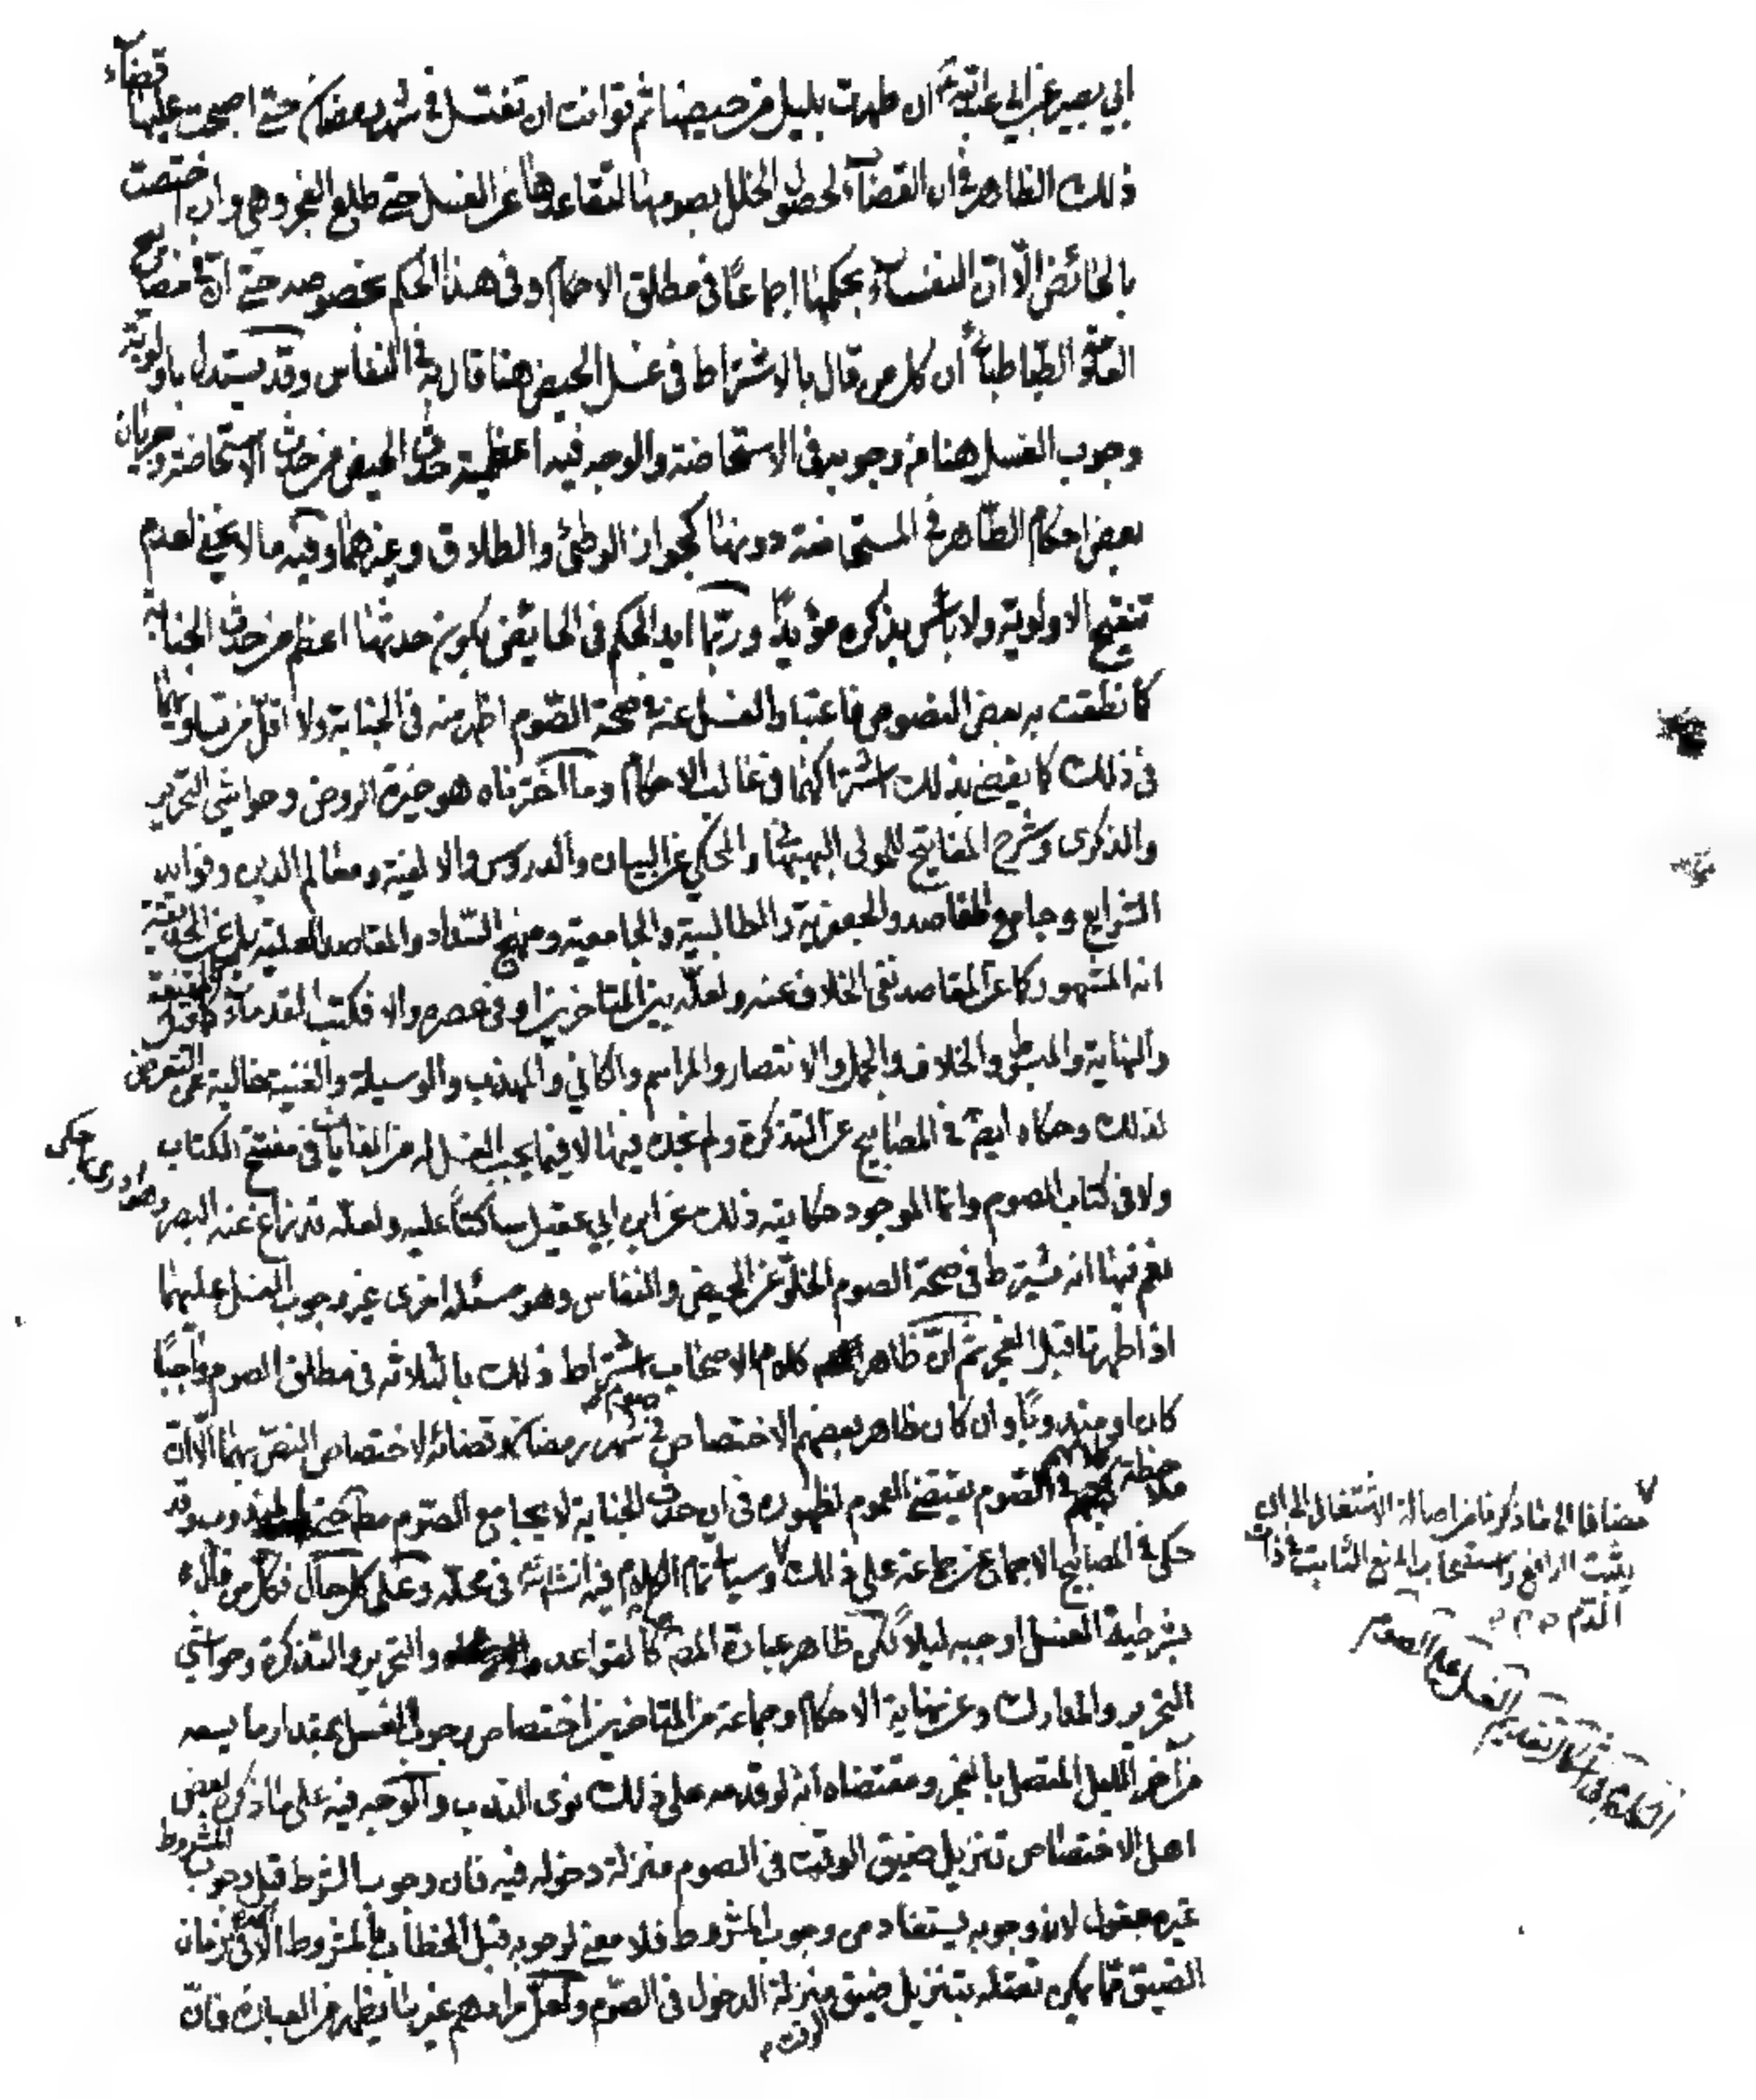 ابي بصير عن ابي عبد الله ع ان طهرت بليل من حيضها ثم توانت ان تغتسل في شهر رمضان حتى اصبحت عليها قضاء
ذلك الظاهر في ان القضاء لحصول الخلل بصومها لتقاعدها عن الغسل حتى طلع الفجر وهي وان اختصت
بالحائض الّا ان النفساء بحكمها اجماعًا في مطلق الاحكام وفي هذا الحكم بخصوصه حتى انّ في مصابيح
العلامة الطباطبائي أن كل من قال بالاشتراط في غسل الحيض هنا قال به في النفاس وقد يستدل باولوية
وجوب الغسل هنا من وجوبه في الاستحاضة والوجه فيه اعظمية حدث الحيض من حدث الاستحاضة وجريان
بعض احكام الطاهر في المستحاضة دونها كجواز الوطئ والطلاق وغيرهما وفيه ما لا يخفى لعدم
تنقيح الاولوية ولا باس بذكره مؤيدًا وربّما ايد الحكم في الحايض بكون حدثها اعظم من حدث الجنابة
كما نطقت به بعض النصوص فاعتبار الغسل عنه في صحة الصّوم اظهر منه في الجنابة ولا اقل من تساويهما
في ذلك كما يقضي بذلك اشتراكهما في غالب الاحكام وما اخترناه هو خيرة الروض وحواشي التحرير
والذكرى وشرح المفاتيح للمولى البهبهاني والمحكي عن البيان والدروس والالفية ومعالم الدين وفوائد
الشرايع وجامع المقاصد والجعفرية والمطالبية والجامعية ومنهج السّداد والمقاصد العلية بل عن الحديقة
انه المشهور كما عن المقاصد نفي الخلاف عنه ولعلّه بين المتاخرين او في عصره والا فكتب القدماء كالمقنعة
والنهاية والمبسوط والخلاف والجمل والانتصار والمراسم والكافي والمهذب والوسيلة والغنية خالية عن التعرض
لذلك وحكاه ايضًا في المصابيح عن التذكرة ولم نجده فيها لا فيما يجب الغسل له من الغايات في مفتتح الكتاب
ولا في كتاب الصوم وانما الموجود حكايته ذلك عن ابن ابي عقيل ساكتًا عليه ولعلّه قد زاغ عنه البصر وهو ادرى بما حكى
نعم فيها انه يشترط في صحة الصوم الخلوّ عن الحيض والنفاس وهو مسئلة اخرى غير وجوب الغسل عليهما
اذا طهرتا قبل الفجر ثم انّ ظاهر كلام الاصحاب اشتراط ذلك بالثلاثة في مطلق الصوم واجبًا
كان او مندوبًا وان كان ظاهر بعضهم الاختصاص في صوم شهر رمضان وقضائه لاختصاص النصّ بهما الّا ان
ملاحظة كلامهم في الصّوم يقتضي العموم لظهوره في ان حدث الجنابة لا يجامع الصّوم مطلقا حتى المندوب وقد
حكى في المصابيح الاجماع عن جماعة على ذلك وسياتي تمام الكلام فيه انشاء الله في محلّه وعلى كل حال فكل من قال
بشرطية الغسل اوجبه ليلاً لكن ظاهر عبارة المص هنا كالقواعد والتحرير والتذكرة وحواشي
التحرير والمدارك وعن نهاية الاحكام وجماعة من المتاخرين اختصاص وجوب الغسل بمقدار ما يسعه
من آخر الليل المتصل بالفجر ومقتضاه انه لو قدمه على ذلك نوى الندب والوجه فيه على ما ذكره بعض
اهل الاختصاص تنزيل ضيق الوقت في الصوم منزلة دخوله فيه فان وجوب الشرط قبل وجوب المشروط
غير معقول لان وجوبه يستفاد من وجوب المشروط فلا معنى لوجوبه قبل الخطاب بالمشروط الا في زمان
الضيق فما يمكن تعقله بتنزيل ضيق الوقت منزلة الدخول في الصّوم ولعلّ مرادهم غير ما يظهر من العبارة فانّ
مضافا الى ما ذكرنا من اصالة الاشتغال الى ان
يثبت الرافع واستصحاب المنع الثابت في ذات
الدّم
الكلام في تقديم الغسل على الصوم